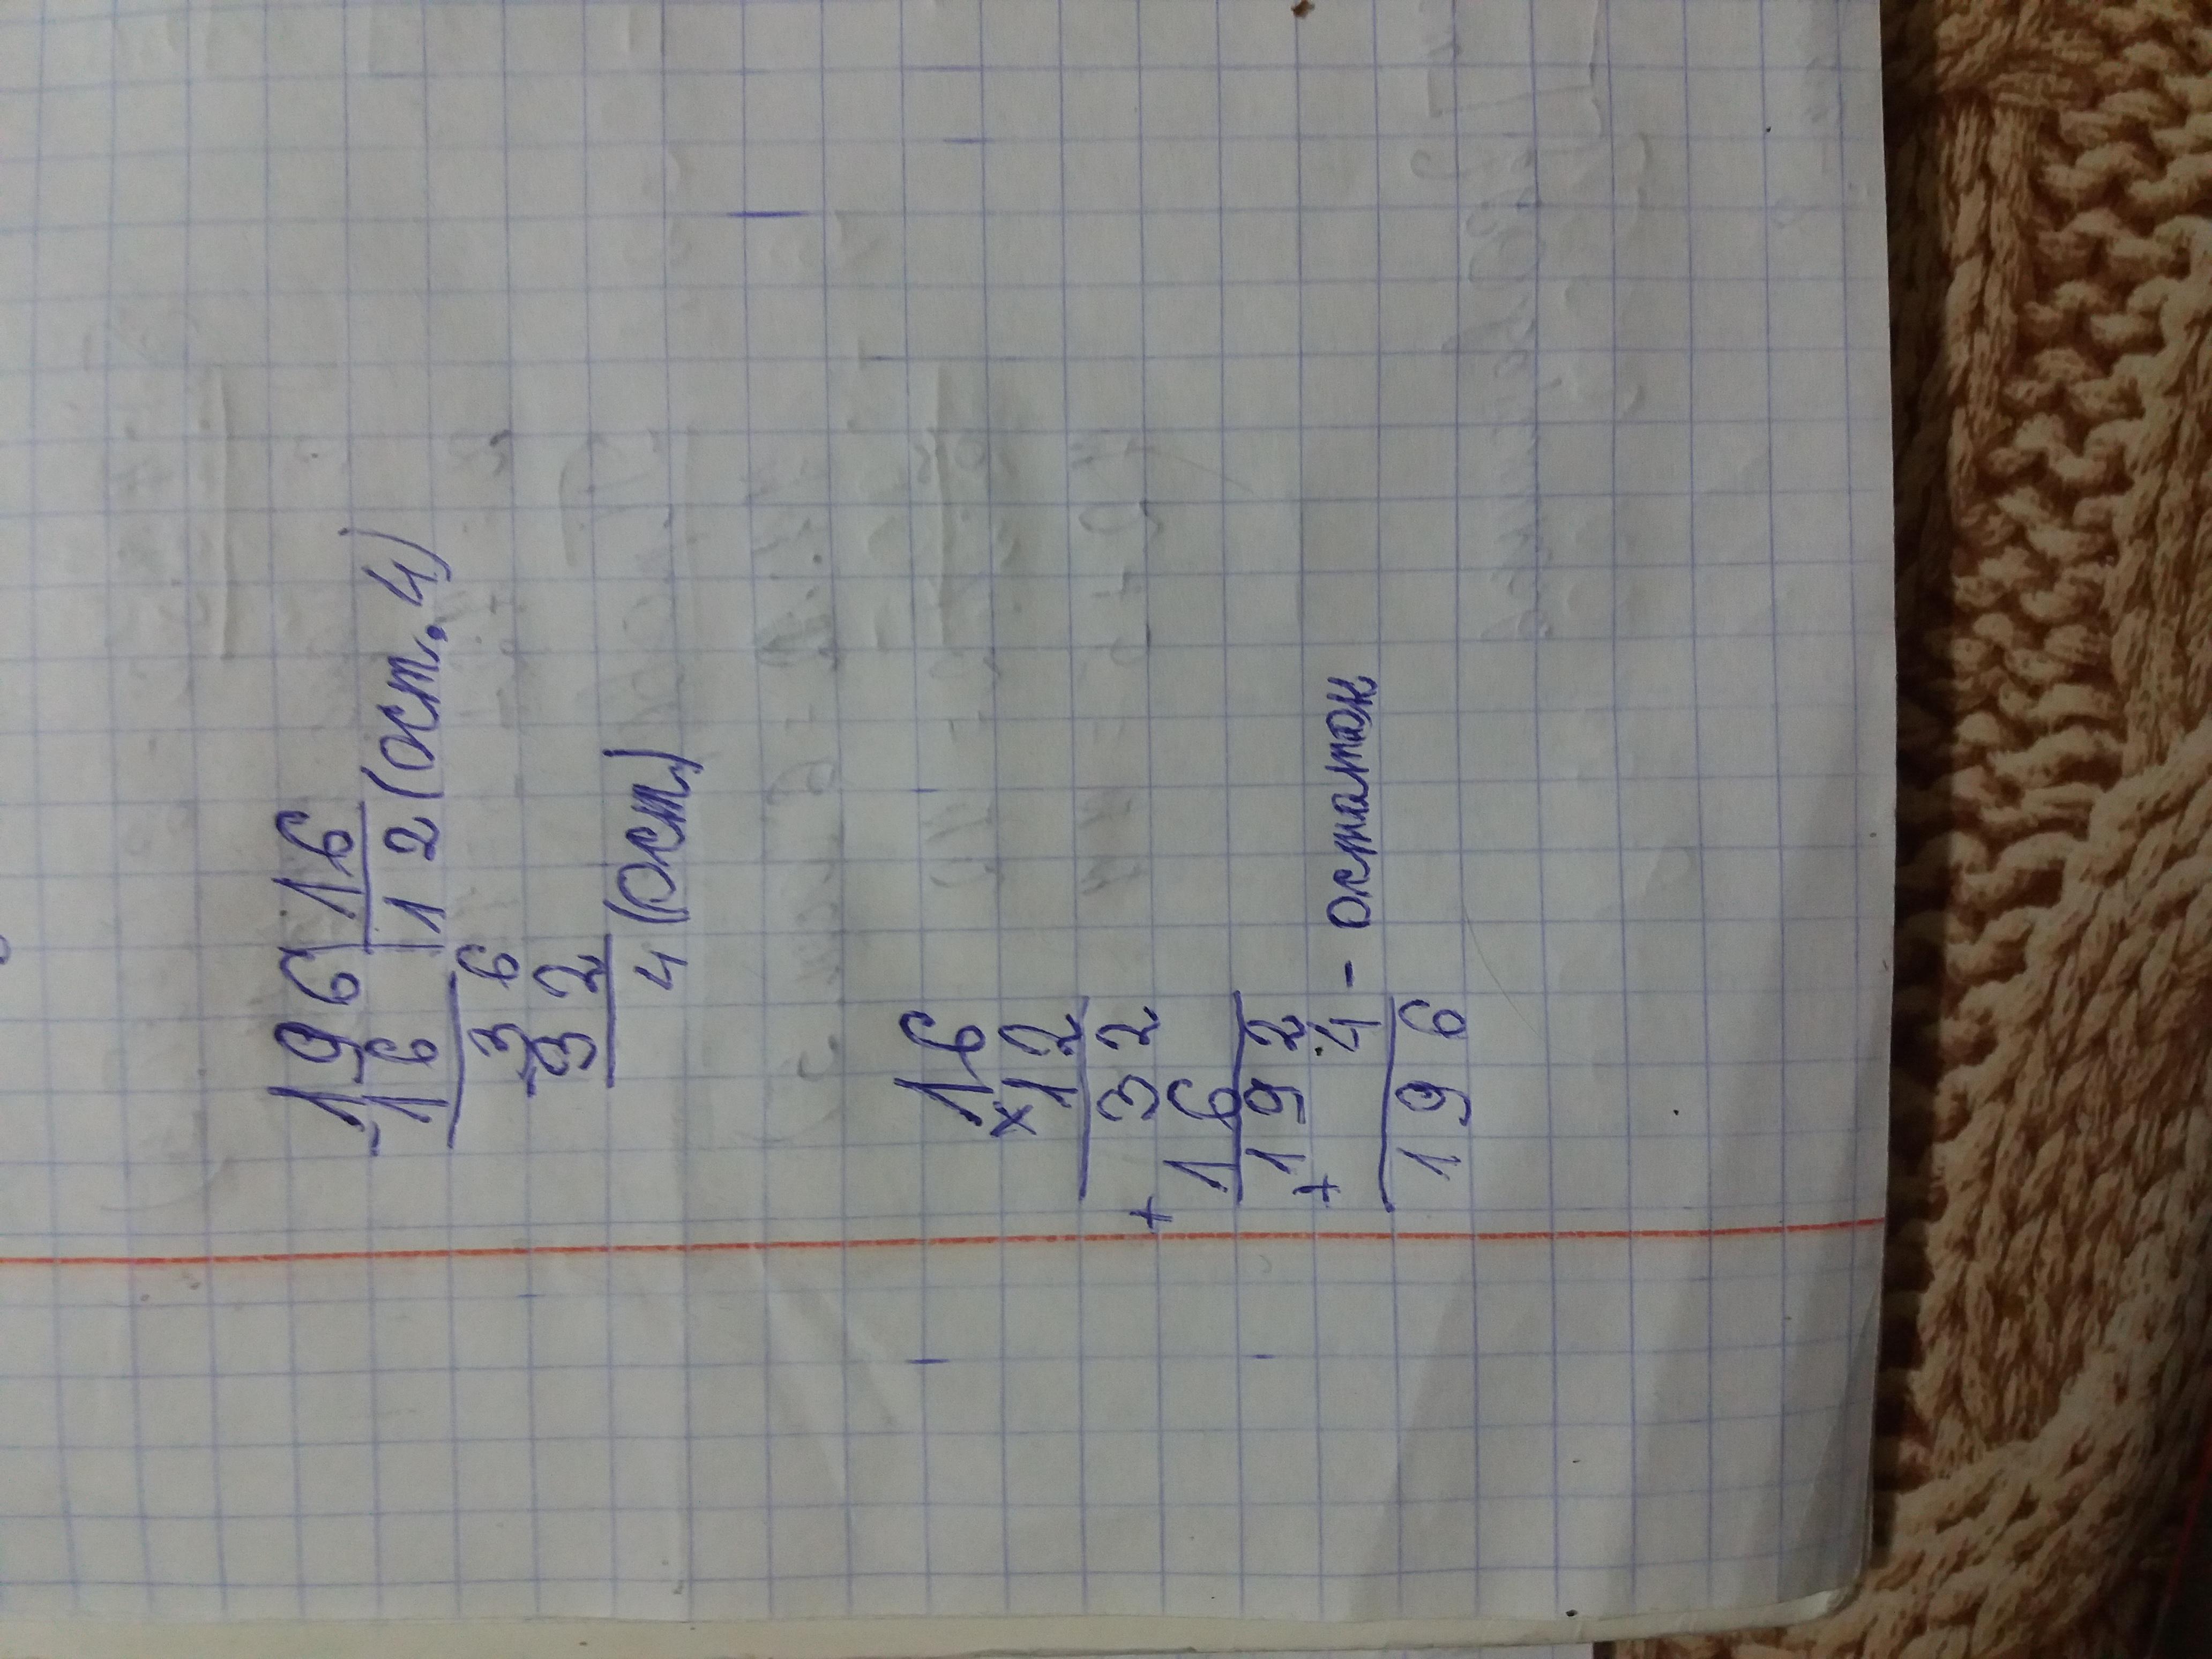 196 | 16
- 16 | 12 (ост. 4)
36
- 32
4 (ост.)
16
× 12
32
+ 16
192
+ 4 - остаток
196